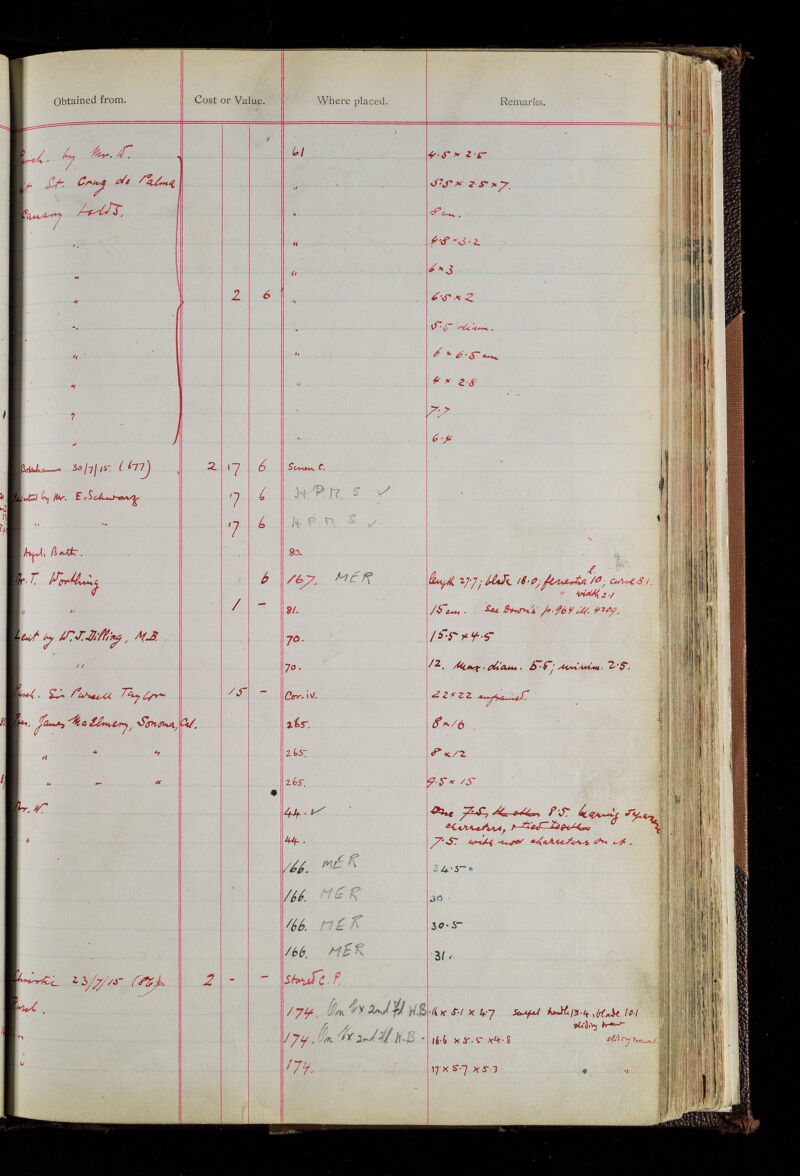 Obtained from. Cost or Value. Where placed. Remarks.
by Mr. W. 61 4.5 × 2.5
at St. Cruz de Palma " 5.5 × 2.5 × 7.
Canary Islds. " 8 cm.
" 4.8 × 3.2
" " 6 × 3
" 2 6 " 6.5 × 2
" " 5.5 diam.
" " 6 × 6.5 cm
" " 4 × 2.8
" 7.7
" " 6.4
30/7/15 (677) 2 17 6 C.
by Mr. E. Schwarz 17 6 H P.M. S ✓
" " 17 6 H P M S ✓
Angel, Bath. 82.
T. Worthing 6 167. MER length 27.7; blade 18.0; fenestra l. 10, curve 8.1.
" width 2.1
" " 1 – 81. 15 cm. See Down's p. 964 ill. 4209.
Lent by W. J. Dilling, M.B 70. 15.5 × 4.5
" 70. 12. Max. diam. 5.5; minim. 2.5.
Purch. Sir Pursell Taylor 15 – Corr. iv. 22 × 22 unframed.
Pres. James McElmeny, Sonoma, Cal. 265. 8 × 10
" " " 265. 8 × 12
" " " 265. 9.5 × 15
W. 44. ✓ One 7.5, the other 8.5. bearing
characters, + tied together
" 44. 7.5. with characters on it.
166. MER 34.5
166. MER 30.
166. MER 30.5
166. MER 31.
23/7/15 2 – – Stored C. P.
Purch. 174. On 2nd Fl H.B. 16 × 5.1 × 4.7 Scalpel handle 13.4, blade 10.1
sliding
" 174. On 2nd Fl H.B. 16.6 × 5.5 × 4.8 sliding
" 174. 17 × 5.7 × 5.3 "